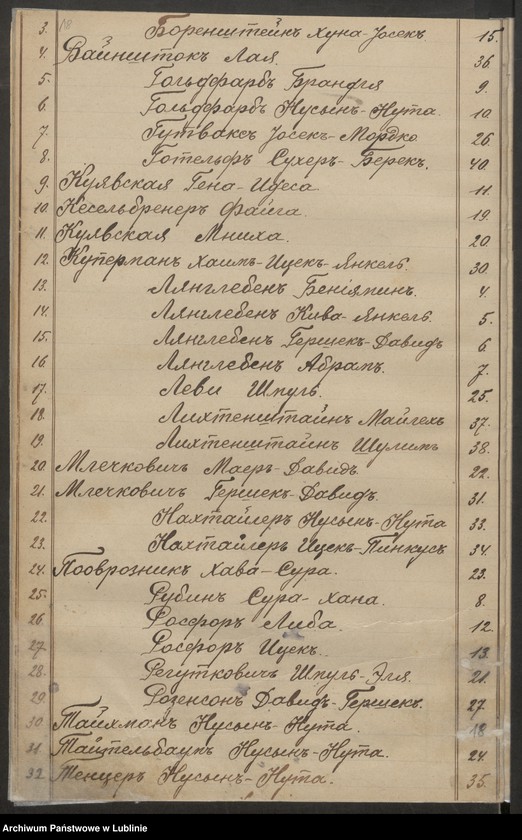 18
3. Боренштейнъ Хуна-Іосекъ. 15.
4. Вайнштокъ Лая. 36.
5. Гольдфарбъ Брандля 9.
6. Гольдфарбъ Нусынъ-Нута. 10.
7. Гутваксъ Іосекъ-Мордко 26.
8. Готельфъ Сухеръ-Берекъ. 40.
9. Куявская Гена-Идеса 11.
10. Кесельбренеръ Файга. 19.
11. Куявская Мниха. 20
12. Куперманъ Хаимъ-Ицекъ-Янкель. 30.
13. Лянглебенъ Беніяминъ. 4.
14. Лянглебенъ Кива-Янкель. 5.
15. Лянглебенъ Гершекъ-Давидъ 6.
16. Лянглебенъ Абрамъ. 7.
17. Леви Шмуль. 25.
18. Лихтенштайнъ Майлехъ 37.
19. Лихтенштайнъ Шулимъ 38.
20. Млечковичъ Маеръ-Давидъ. 22.
21. Млечковичъ Гершекъ-Давидъ. 31.
22. Нахтайлеръ Нусынъ-Нута 33.
23. Нахтайлеръ Ицекъ-Пинкусъ 34.
24. Повроз­никъ Хава-Сура. 23.
25. Рубинъ Сура-Хана. 8.
26. Росфоръ Либа. 12.
27. Росфоръ Ицекъ. 13.
28. Регутковичъ Шмуль-Эля. 21.
29. Розенсонъ Давидъ-Гершекъ. 27.
30. Тайхманъ Нусынъ-Нута. 18
31. Тайтельбаумъ Нусынъ-Нута. 24.
32. Тенцеръ Нусынъ-Нута. 35.
Archiwum Państwowe w Lublinie